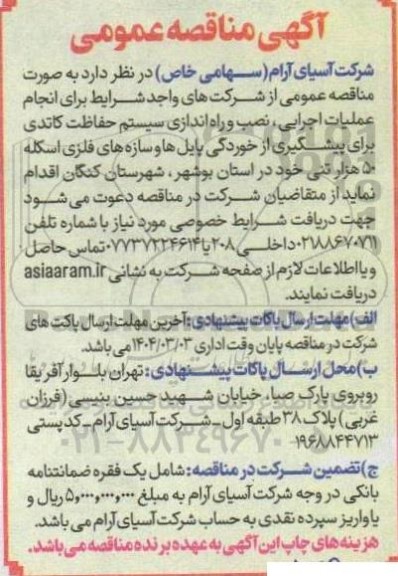 آگهی مناقصه عمومی
شرکت آسیای آرام (سهامی خاص) در نظر دارد به صورت
مناقصه عمومی از شرکت های واجد شرایط برای انجام
عملیات اجرایی، نصب و راه اندازی سیستم حفاظت کاتدی
برای پیشگیری از خوردگی پایل ها و سازه های فلزی اسکله
۵۰ هزار تنی خود در استان بوشهر، شهرستان کنگان اقدام
نماید از متقاضیان شرکت در مناقصه دعوت می شود
جهت دریافت شرایط خصوصی مورد نیاز با شماره تلفن
۰۲۱۸۸۶۷۰۷۱۱ داخلی ۲۰۸ یا ۰۷۷۳۷۲۲۴۶۱۴ تماس حاصل
و یا اطلاعات لازم از صفحه شرکت به نشانی asiaaram.ir
دریافت نمایند.
الف) مهلت ارسال پاکات پیشنهادی: آخرین مهلت ارسال پاکت های
شرکت در مناقصه پایان وقت اداری ۱۴۰۴/۰۳/۰۳ می باشد.
ب) محل ارسال پاکات پیشنهادی: تهران بلوار آفریقا
روبروی پارک صبا، خیابان شهید حسین بنیسی (فرزان
غربی) پلاک ۳۸ طبقه اول - شرکت آسیای آرام - کدپستی
۱۹۶۸۸۴۴۷۱۳
ج) تضمین شرکت در مناقصه: شامل یک فقره ضمانتنامه
بانکی در وجه شرکت آسیای آرام به مبلغ ۵,۰۰۰,۰۰۰,۰۰۰ ریال و
یا واریز سپرده نقدی به حساب شرکت آسیای آرام می باشد.
هزینه های چاپ این آگهی به عهده برنده مناقصه می باشد.